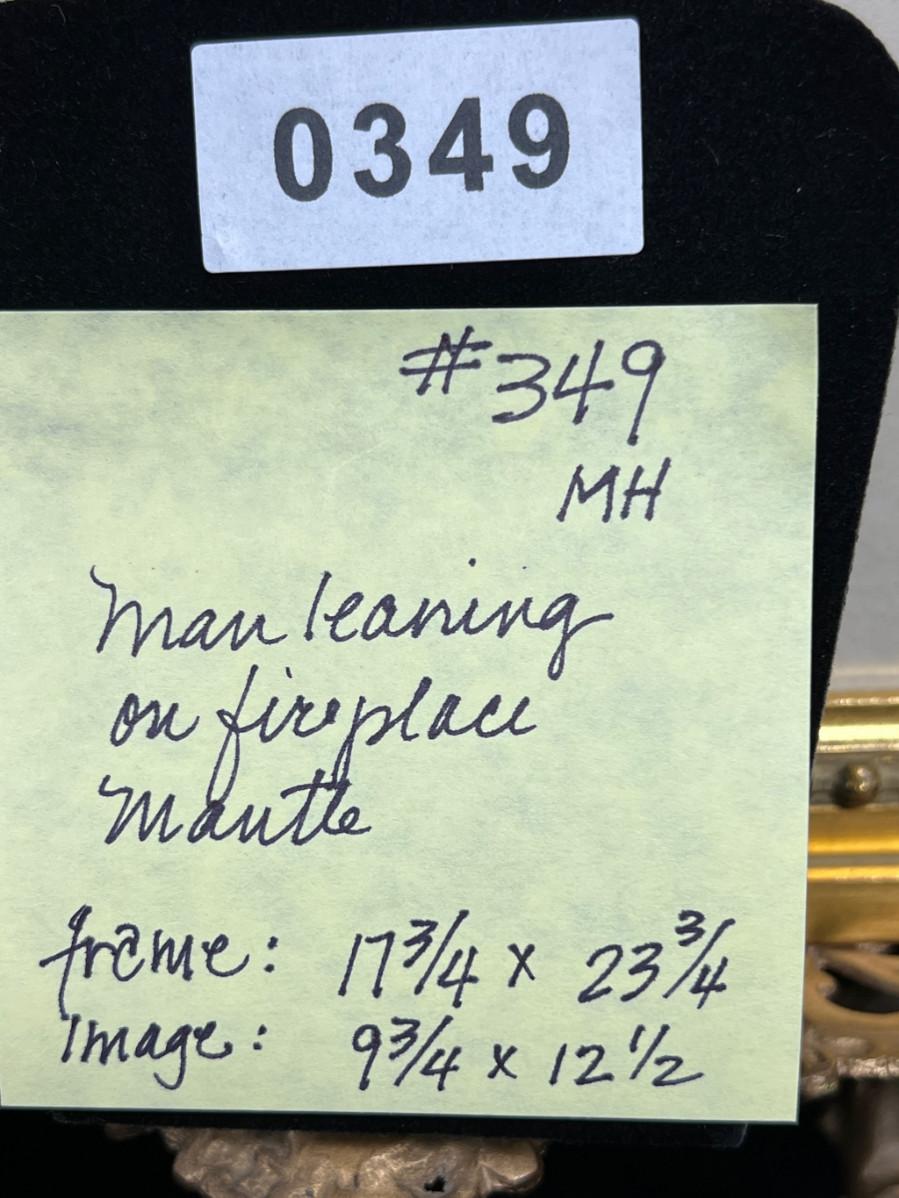 0349
#349
MH
Man leaning
on fireplace
Mantle
frame: 17 3/4 x 23 3/4
Image: 9 3/4 x 12 1/2